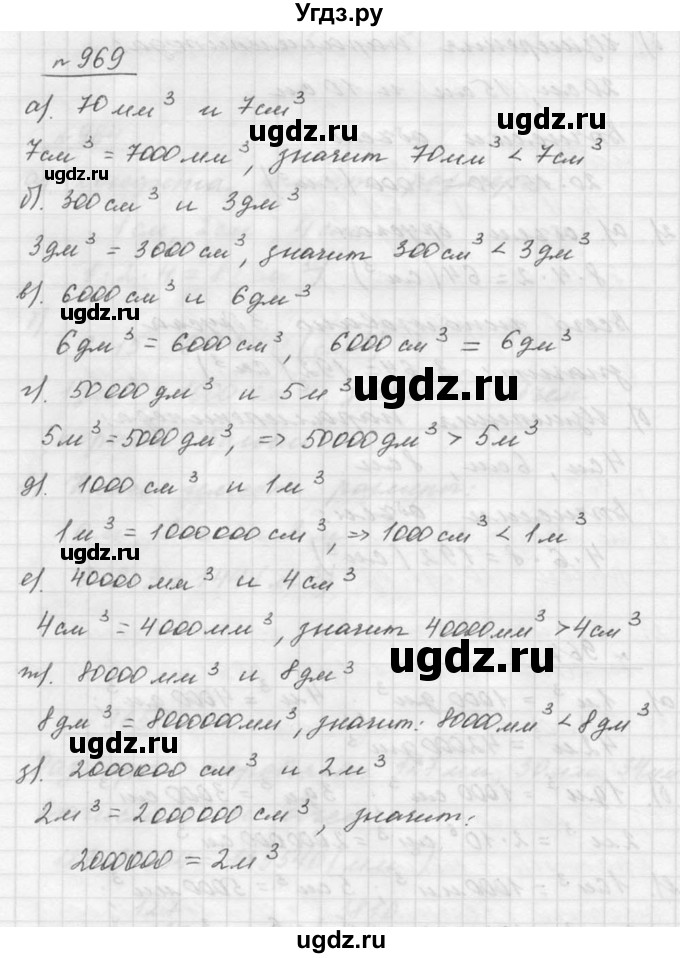 Угдз.ру
№ 969
а). 70 мм³ и 7см³
7см³ = 7000 мм³, значит 70мм³ < 7см³
ugdz.ru
б). 300 см³ и 3дм³
3дм³ = 3000 см³, значит 300 см³ < 3дм³
в). 6000 см³ и 6дм³
ugdz.ru
6дм³ = 6000 см³, 6000 см³ = 6дм³
ugdz.ru
г). 50000 дм³ и 5м³
ugdz.ru
5м³ = 5000 дм³, => 50000 дм³ > 5м³
д). 1000 см³ и 1м³
1м³ = 1000000 см³, => 1000 см³ < 1м³
ugdz.ru
е). 40000 мм³ и 4см³
4см³ = 4000 мм³, значит 40000мм³ > 4см³
ugdz.ru
ugdz.ru
ж). 80000 мм³ и 8дм³
8дм³ = 8000000мм³, значит: 80000мм³ < 8дм³
ugdz.ru
з). 2000000 см³ и 2м³
2м³ = 2000000 см³, значит:
2000000 = 2м³
ugdz.ru
ugdz.ru